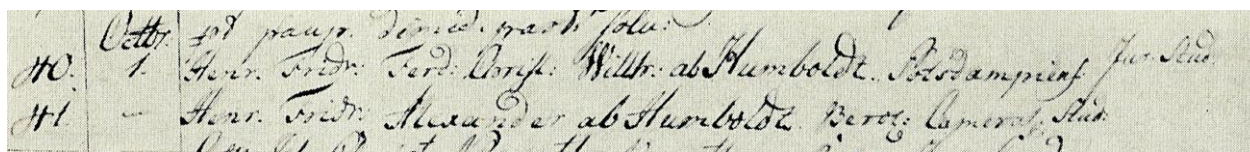 Octbr.
40. 1. Henr. Fridr: Ferd: Christ: Willh: ab Humboldt. Potsdampiens. Jur. Stud.
41. — Henr. Fridr: Alexander ab Humboldt. Berol: Cameral. Stud: